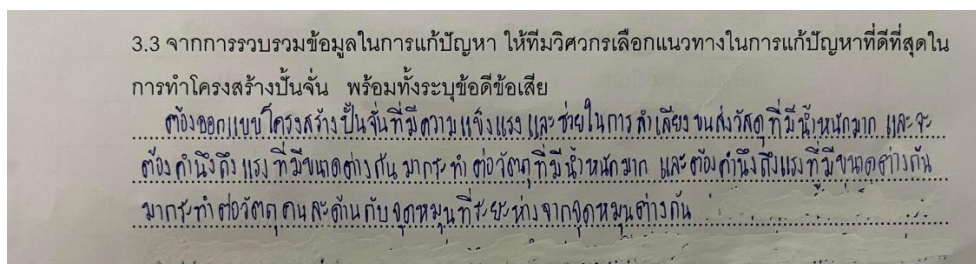 3.3 จากการรวบรวมข้อมูลในการแก้ปัญหา ให้ทีมวิศวกรเลือกแนวทางในการแก้ปัญหาที่ดีที่สุดใน
การทำโครงสร้างปั้นจั่น พร้อมทั้งระบุข้อดีข้อเสีย
ต้องออกแบบโครงสร้างปั้นจั่นที่มีความแข็งแรง และช่วยในการลำเลียงขนส่งวัสดุที่มีน้ำหนักมาก และจะ
ต้องคำนึงถึงแรงที่มีขนาดต่างกัน มากระทำต่อวัตถุที่มีน้ำหนักมาก และต้องคำนึงถึงแรงที่มีขนาดต่างกัน
มากระทำต่อวัตถุคนละด้านกับจุดหมุนที่ระยะห่างจากจุดหมุนต่างกัน